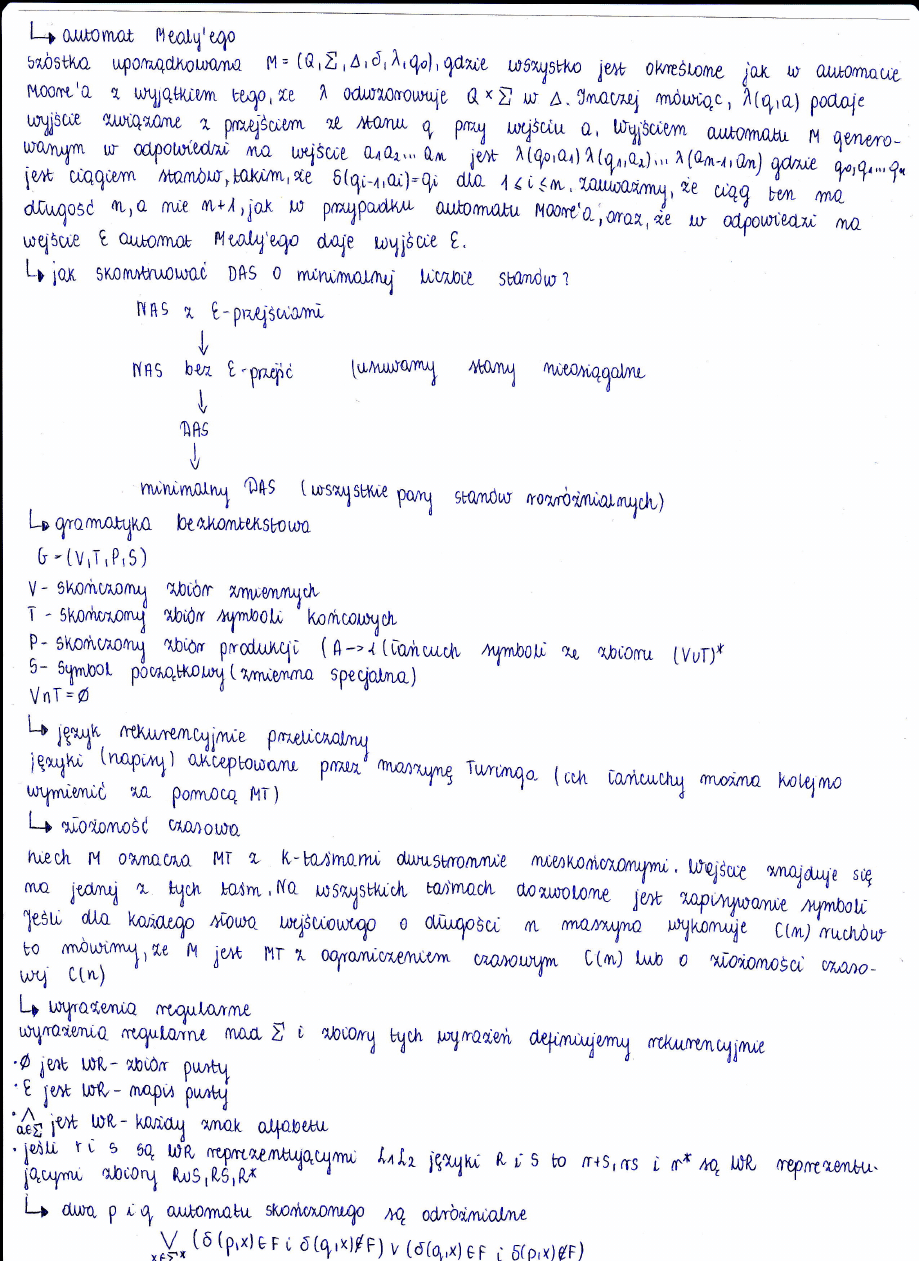 ↳ automat Mealy'ego
szóstka uporządkowana M = (Q, Σ, Δ, δ, λ, q₀), gdzie wszystko jest określone jak w automacie
Moore'a z wyjątkiem tego, że λ odwzorowuje Q × Σ w Δ. Inaczej mówiąc, λ(q,a) podaje
wyjście związane z przejściem ze stanu q przy wejściu a. Wyjściem automatu M genero-
wanym w odpowiedzi na wejście a₁a₂... aₙ jest λ(q₀,a₁) λ(q₁,a₂)... λ(aₙ₋₁,aₙ) gdzie q₀,q₁...qₙ
jest ciągiem stanów, takim, że δ(qᵢ₋₁,aᵢ)=qᵢ dla 1 ≤ i ≤ n. zauważmy, że ciąg ten ma
długość n, a nie n+1, jak w przypadku automatu Moore'a, oraz, że w odpowiedzi na
wejście ε automat Mealy'ego daje wyjście ε.
↳ jak skonstruować DAS o minimalnej liczbie stanów?
NAS z ε-przejściami
↓
NAS bez ε-przejść (usuwamy stany nieosiągalne
↓
DAS
↓
minimalny DAS (wszystkie pary stanów rozróżnialnych)
↳ gramatyka bezkontekstowa
G = (V, T, P, S)
V - skończony zbiór zmiennych
T - skończony zbiór symboli końcowych
P - skończony zbiór produkcji (A → (łańcuch symboli ze zbioru (V∪T)*
S - symbol początkowy (zmienna specjalna)
V∩T = ∅
↳ język rekurencyjnie przeliczalny
języki (napisy) akceptowane przez maszynę Turinga (ich łańcuchy można kolejno
wymienić za pomocą MT)
↳ złożoność czasowa
niech M oznacza MT z k-taśmami dwustronnie nieskończonymi. Wejście znajduje się
na jednej z tych taśm. Na wszystkich taśmach dozwolone jest zapisywanie symboli
Jeśli dla każdego słowa wejściowego o długości n maszyna wykonuje C(n) ruchów
to mówimy, że M jest MT z ograniczeniem czasowym C(n) lub o złożoności czaso-
wej C(n)
↳ wyrażenia regularne
wyrażenia regularne nad Σ i zbiory tych wyrażeń definiujemy rekurencyjnie
· ∅ jest WR - zbiór pusty
· ε jest WR - napis pusty
· ⋀ a∈Σ jest WR - każdy znak alfabetu
· jeśli r i s są WR reprezentującymi L₁L₂ języki R i S to r+s, rs i r* są WR reprezentu-
jącymi zbiory R∪S, RS, R*
↳ dwa p i q automatu skończonego są odróżnialne
⋁ x∈Σ* (δ(p,x)∈F i δ(q,x)∉F) ∨ (δ(q,x)∈F i δ(p,x)∉F)